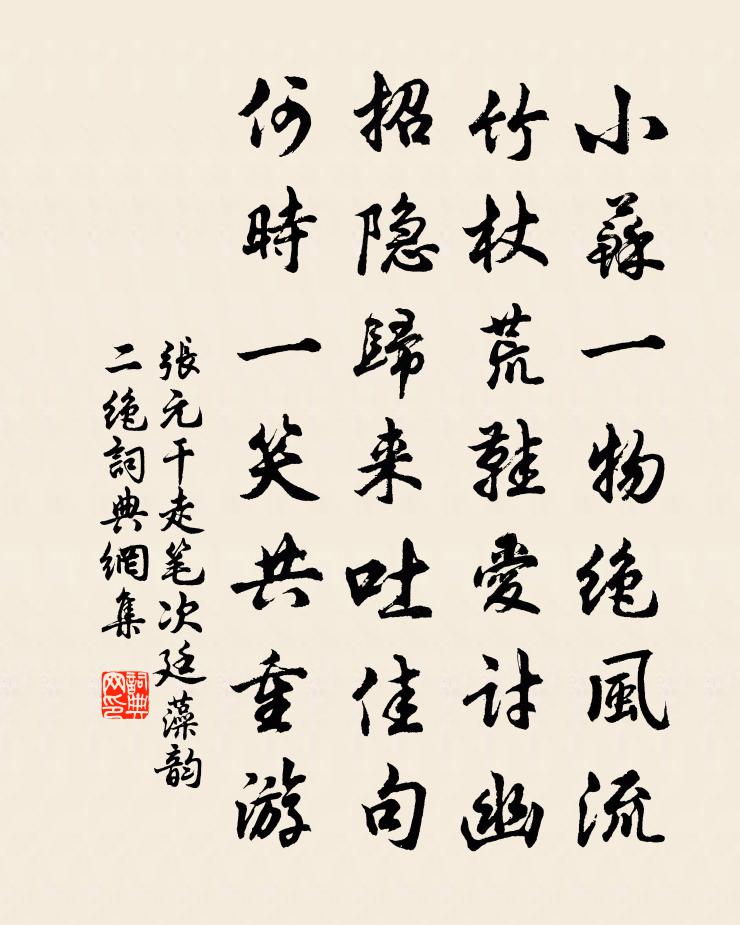 小蘇一物絶風流
竹杖荒鞋愛討幽
招隐歸来吐佳句
何時一笑共重游
張元干走笔次廷藻韵
二绝詞典網集
詞典网印